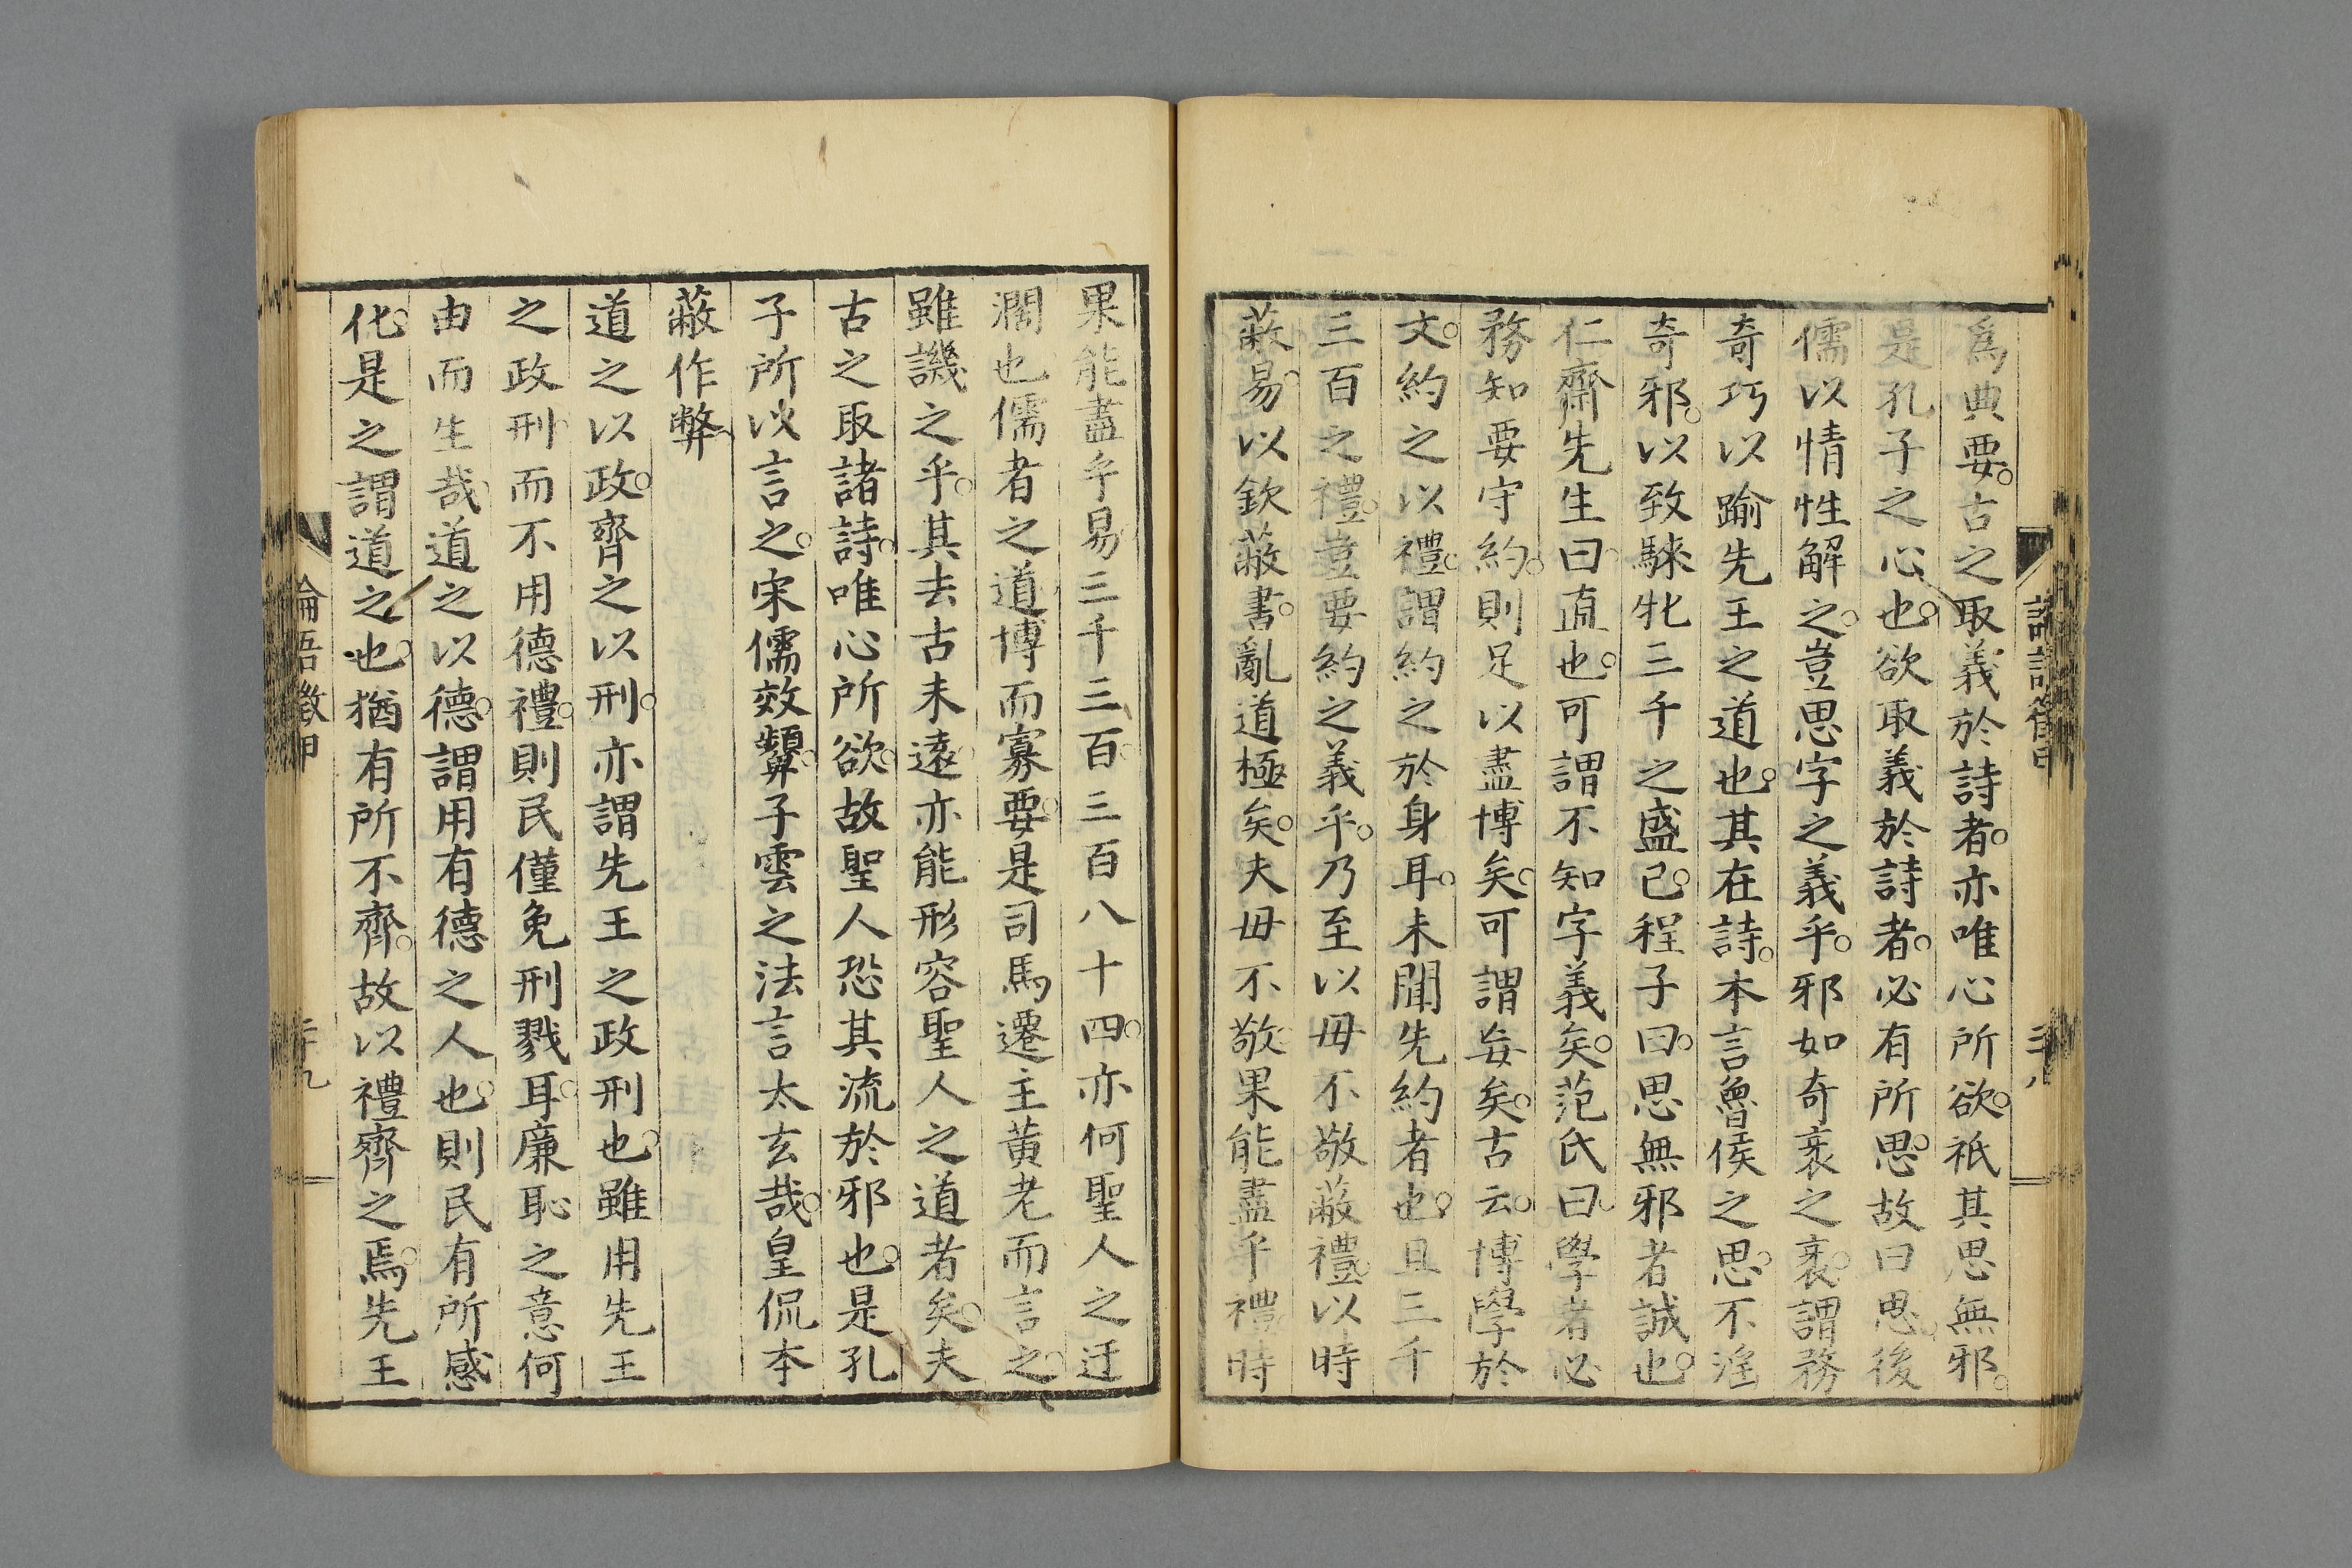 論語徴甲
二十八
爲典要。古之取義於詩者。亦唯心所欲。祇其思無邪。
是孔子之心也。欲取義於詩者。必有所思。故曰思。後
儒以情性解之。豈思字之義乎。邪如奇衺之衺。謂務
奇巧以踰先王之道也。其在詩。本言魯侯之思。不淫
奇邪。以致騋牝三千之盛已。程子曰。思無邪者誠也。
仁齋先生曰。直也。可謂不知字義矣。范氏曰。學者必
務知要。守約。則足以盡博矣。可謂妄矣。古云。博學於
文。約之以禮。謂約之於身耳。未聞先約者也。且三千
三百之禮。豈要約之義乎。乃至以毋不敬蔽禮。以時
蔽易。以欽蔽書。亂道極矣。夫毋不敬。果能盡乎禮。時
果能盡乎易三千三百。三百八十四。亦何聖人之迂
濶也儒者之道。博而寡要。是司馬遷主黄老而言之。
雖譏之乎。其去古未遠。亦能形容聖人之道者矣。夫
古之取諸詩。唯心所欲。故聖人恐其流於邪也。是孔
子所以言之。宋儒效顰。子雲之法言太玄哉。皇侃本
蔽作弊。
道之以政。齊之以刑。亦謂先王之政刑也。雖用先王
之政刑。而不用德禮。則民僅免刑戮耳。廉恥之意何
由而生哉。道之以德。謂用有德之人也。則民有所感
化。是之謂道之也。猶有所不齊。故以禮齊之焉。先王
論語徴甲
二十九